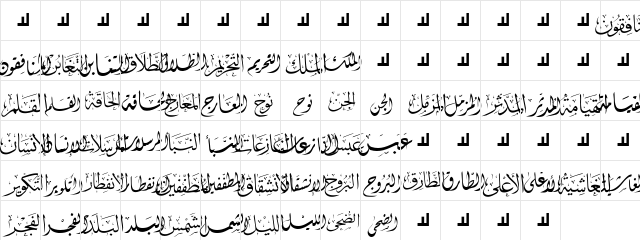 نافقون
الملك الملك التحريم التحريم الطلاق الطلاق التغابن التغابن المنافقون
القيامة القيامة المدثر المدثر المزمل المزمل الجن الجن نوح نوح المعارج المعارج الحاقة الحاقة القلم القلم
عبس عبس النازعات النازعات النبأ النبأ المرسلات المرسلات الإنسان الإنسان
الغاشية الغاشية الأعلى الأعلى الطارق الطارق البروج البروج الانشقاق الانشقاق المطففين المطففين الانفطار الانفطار التكوير التكوير
الضحى الضحى الليل الليل الشمس الشمس البلد البلد الفجر الفجر